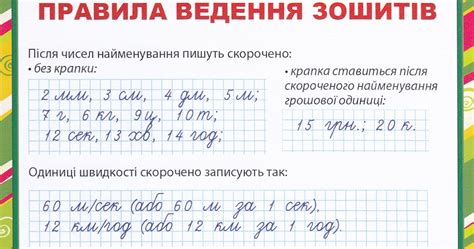 ПРАВИЛА ВЕДЕННЯ ЗОШИТІВ
Після чисел найменування пишуть скорочено:
• без крапки:
2 мм, 3 см, 4 дм, 5 м;
7 г, 6 кг, 9 ц, 10 т;
12 сек, 13 хв, 14 год;
• крапка ставиться після
скороченого найменування
грошової одиниці:
15 грн.; 20 к.
Одиниці швидкості скорочено записують так:
60 м/сек (або 60 м за 1 сек).
12 км/год (або 12 км за 1 год).